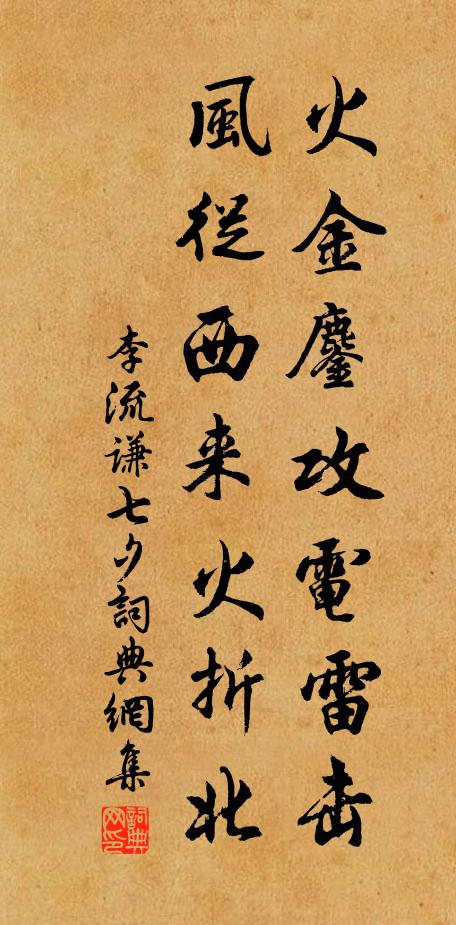 火金鏖攻電雷击
風從西来火折北
李流谦七夕詞典網集
詞典网印